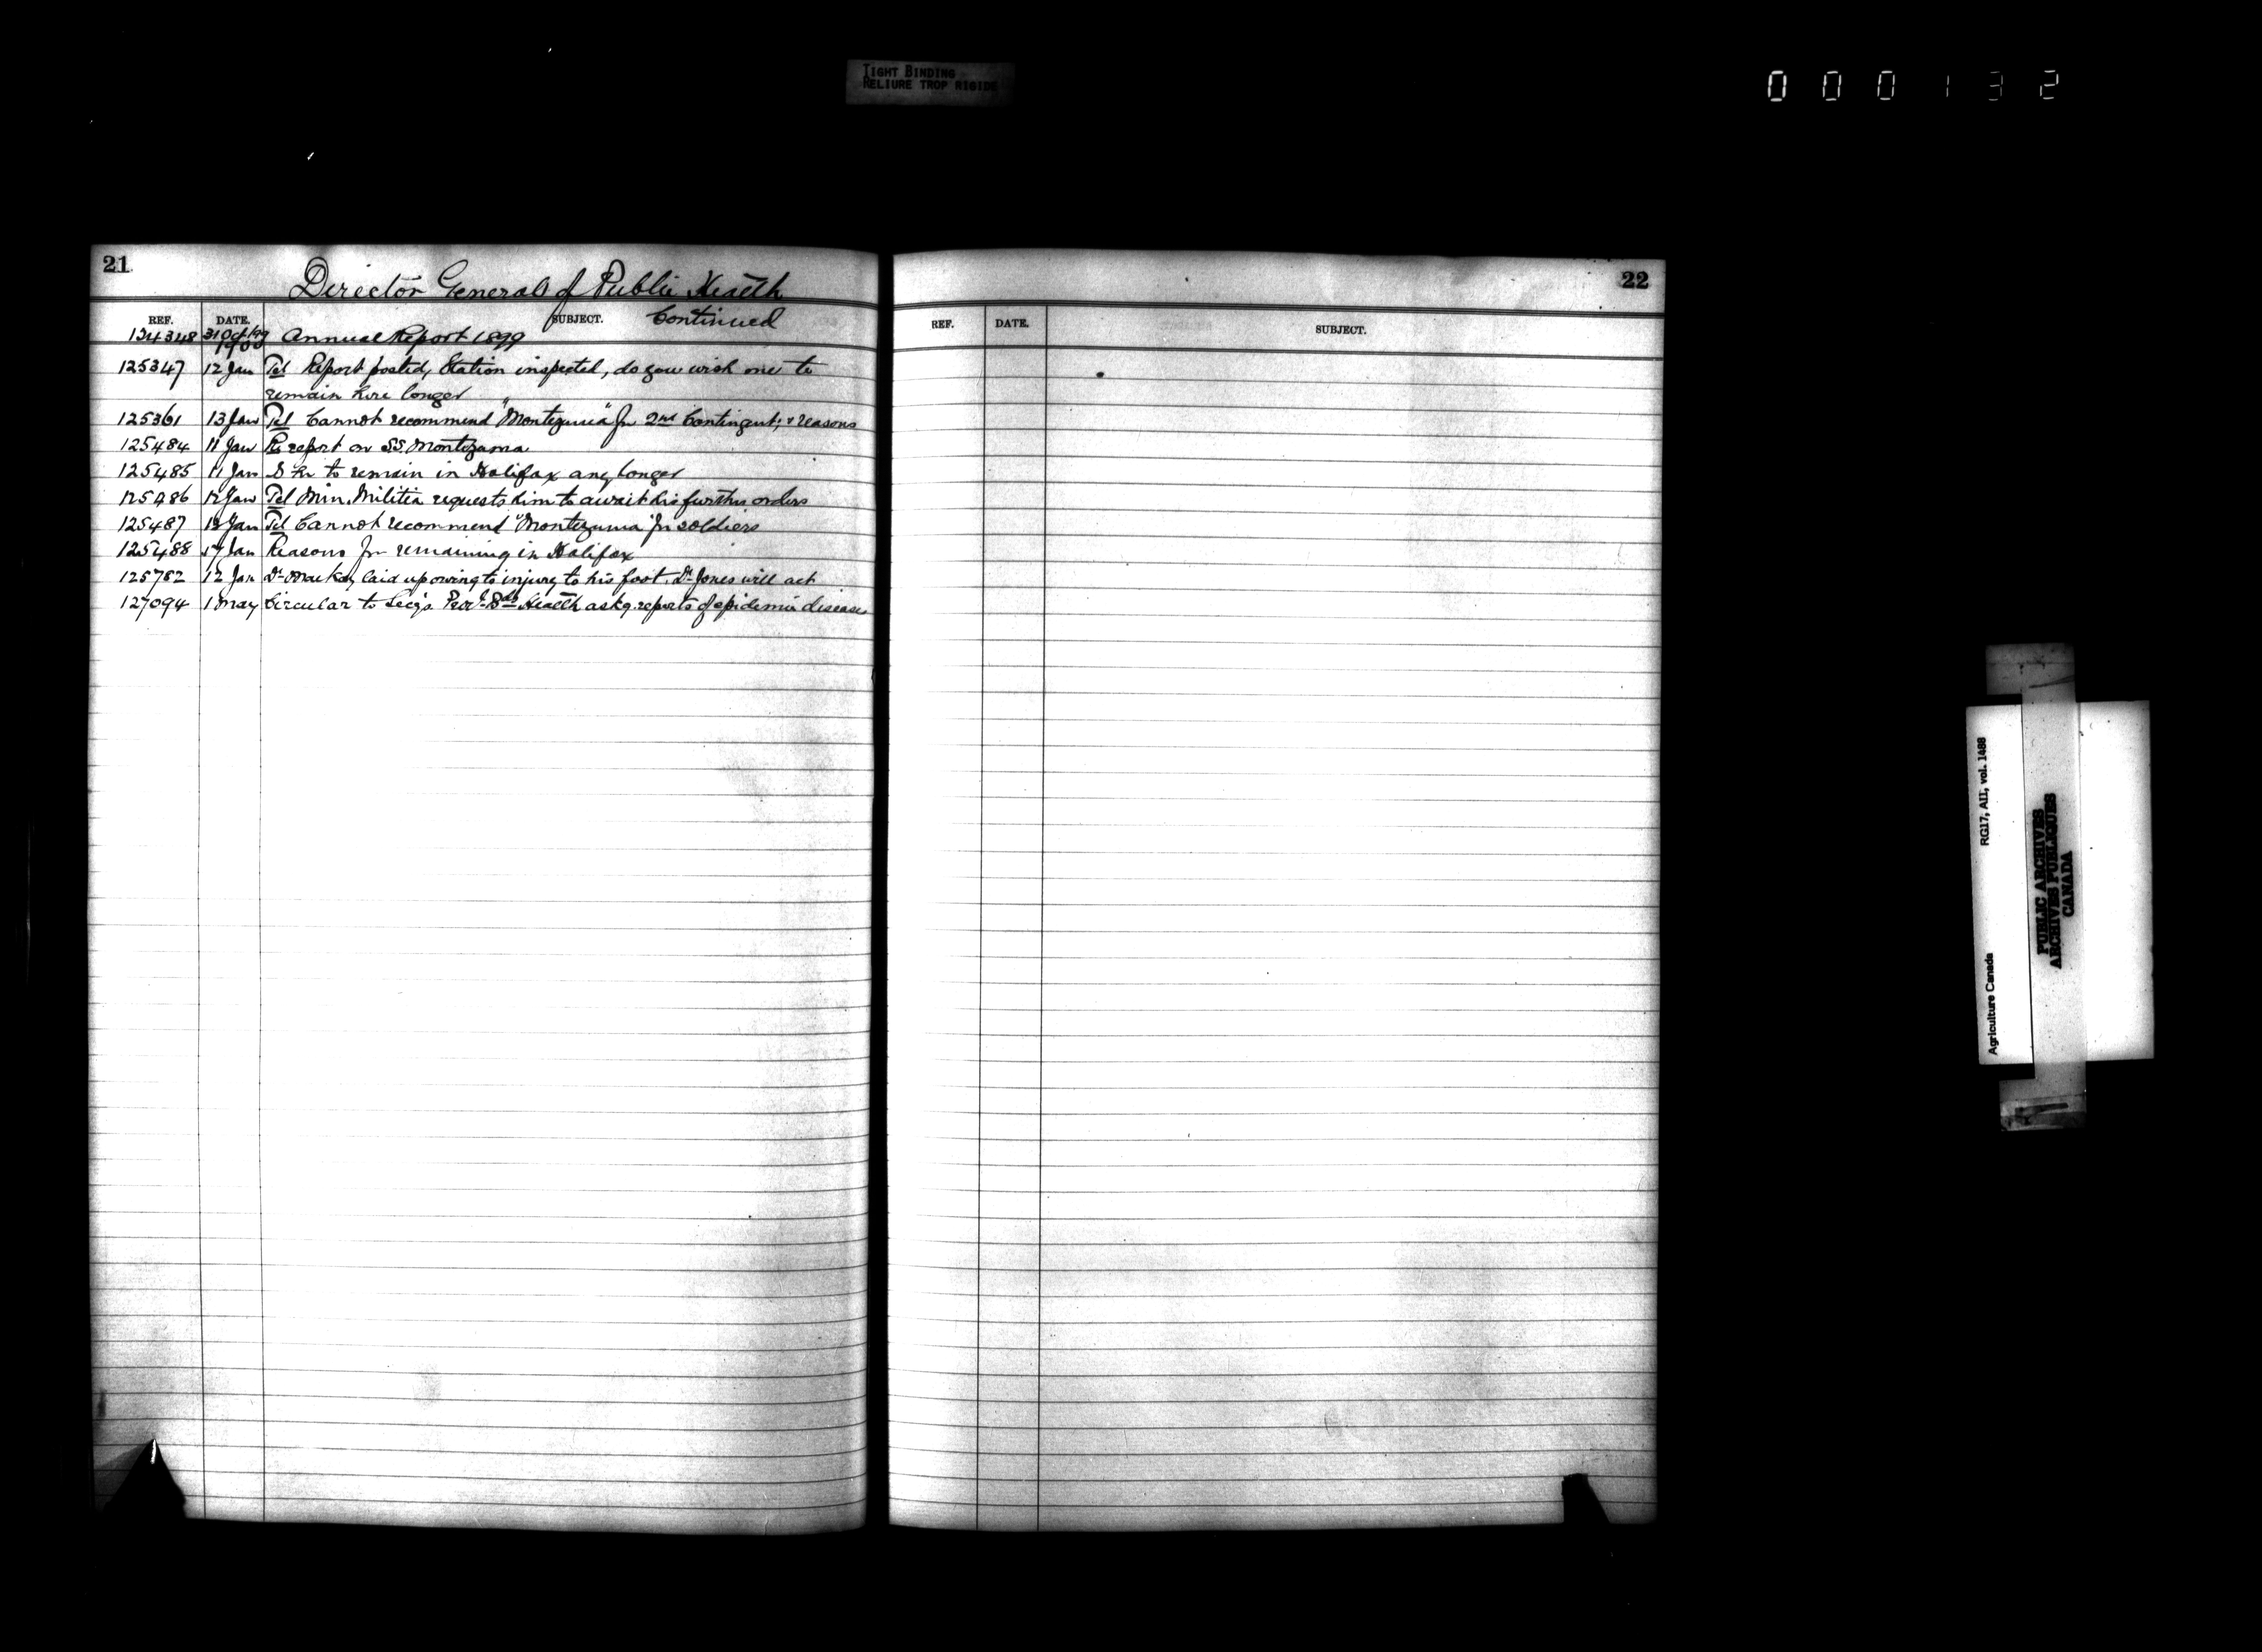 TIGHT BINDING
RELIURE TROP RIGIDE
000132
21
Director General of Public Health
Continued
REF. DATE. SUBJECT.
124348 31 Oct/99 Annual Report 1899
1900
125347 12 Jan Tel Report posted, Station inspected, do you wish me to
remain here longer
125361 13 Jan Tel Cannot recommend "Montezuma" for 2nd Contingent; & reasons
125484 11 Jan Re report on S.S. Montezuma
125485 11 Jan Is he to remain in Halifax any longer
125486 12 Jan Tel Min. Militia requests him to await his further orders
125487 13 Jan Tel Cannot recommend "Montezuma" for soldiers
125488 17 Jan Reasons for remaining in Halifax
125782 12 Jan Dr MacKay laid up owing to injury to his foot. Dr Jones will act
127094 1 May Circular to Secy's Provl Bds Health askg. reports of epidemic disease
22
REF. DATE. SUBJECT.
Agriculture Canada RG17, AII, vol. 1488
PUBLIC ARCHIVES
ARCHIVES PUBLIQUES
CANADA